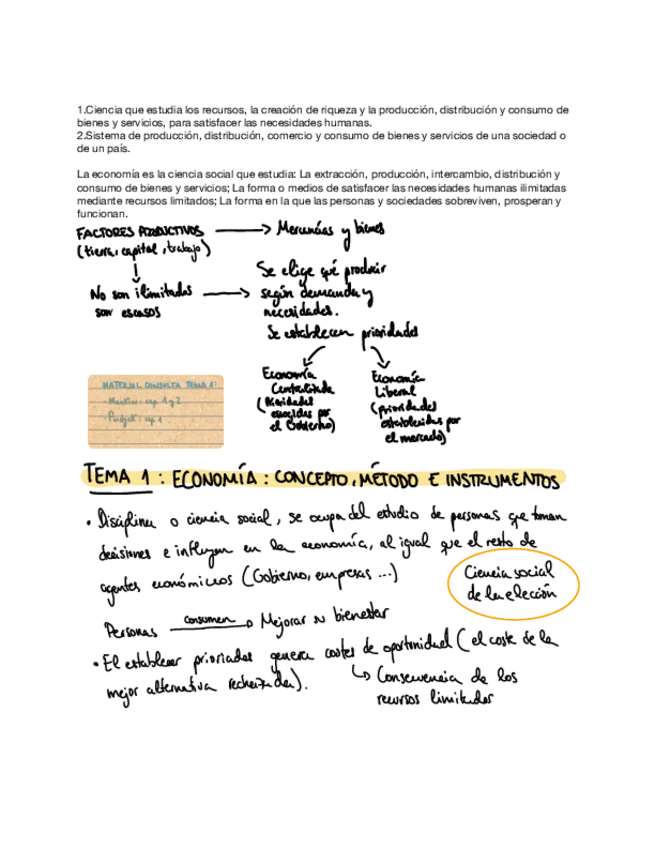 1.Ciencia que estudia los recursos, la creación de riqueza y la producción, distribución y consumo de
bienes y servicios, para satisfacer las necesidades humanas.
2.Sistema de producción, distribución, comercio y consumo de bienes y servicios de una sociedad o
de un país.
La economía es la ciencia social que estudia: La extracción, producción, intercambio, distribución y
consumo de bienes y servicios; La forma o medios de satisfacer las necesidades humanas ilimitadas
mediante recursos limitados; La forma en la que las personas y sociedades sobreviven, prosperan y
funcionan.
FACTORES PRODUCTIVOS → Mercancías y bienes
(tierra, capital, trabajo)
Se elige qué producir
No son ilimitados → según demanda y
son escasos necesidades.
Se establecen prioridades
Economía
Centralizada
(Prioridades
escogidas por
el Gobierno)
Economía
Liberal
(prioridades
establecidas por
el mercado)
MATERIAL CONSULTA TEMA 1:
· Mankiw: cap. 1 y 2
cap 1
TEMA 1: ECONOMÍA: CONCEPTO, MÉTODO E INSTRUMENTOS
• Disciplina o ciencia social, se ocupa del estudio de personas que toman
decisiones e influyen en la economía, al igual que el resto de
agentes económicos (Gobierno, empresas ...)
Ciencia social
de la elección
Personas consumen → Mejorar su bienestar
• El establecer prioridades genera costes de oportunidad (el coste de la
mejor alternativa rechazada).
↳ Consecuencia de los
recursos limitados